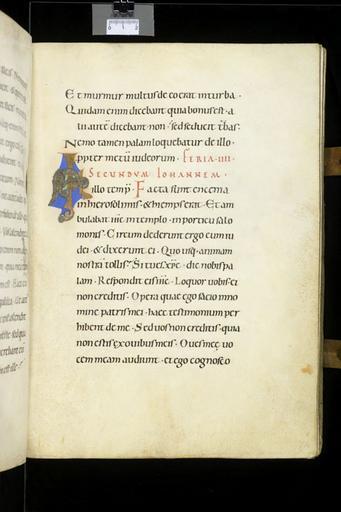 Et murmur multus de eo erat in turba.
Quidam enim dicebant quia bonus est. a
lii autē dicebant non. sed seducit t̄bas.
Nemo tamen palam loquebatur de illo.
ppter metū iudeorum. FERIA. IIII.
SECUNDUM IOHANNEM.
In illo temp̄. Facta sunt encenia
in hierosolimis. & hiemps erat. Et am
bulabat ihc in templo. in porticu salo
monis. Circum dederunt ergo eum iu
dei. & dixerunt ei. Quo usq; animam
nostrā tollis? Si tu es xp̄c. dic nobis pa
lam. Respondit eis ihc. Loquor uobis. et
non creditis. Opera quae ego facio in no
mine patris mei. haec testimonium per
hibent de me. Sed uos non creditis. quia
non estis ex ouibus meis. Oues meę uo
cem meam audiunt. et ego cognosco